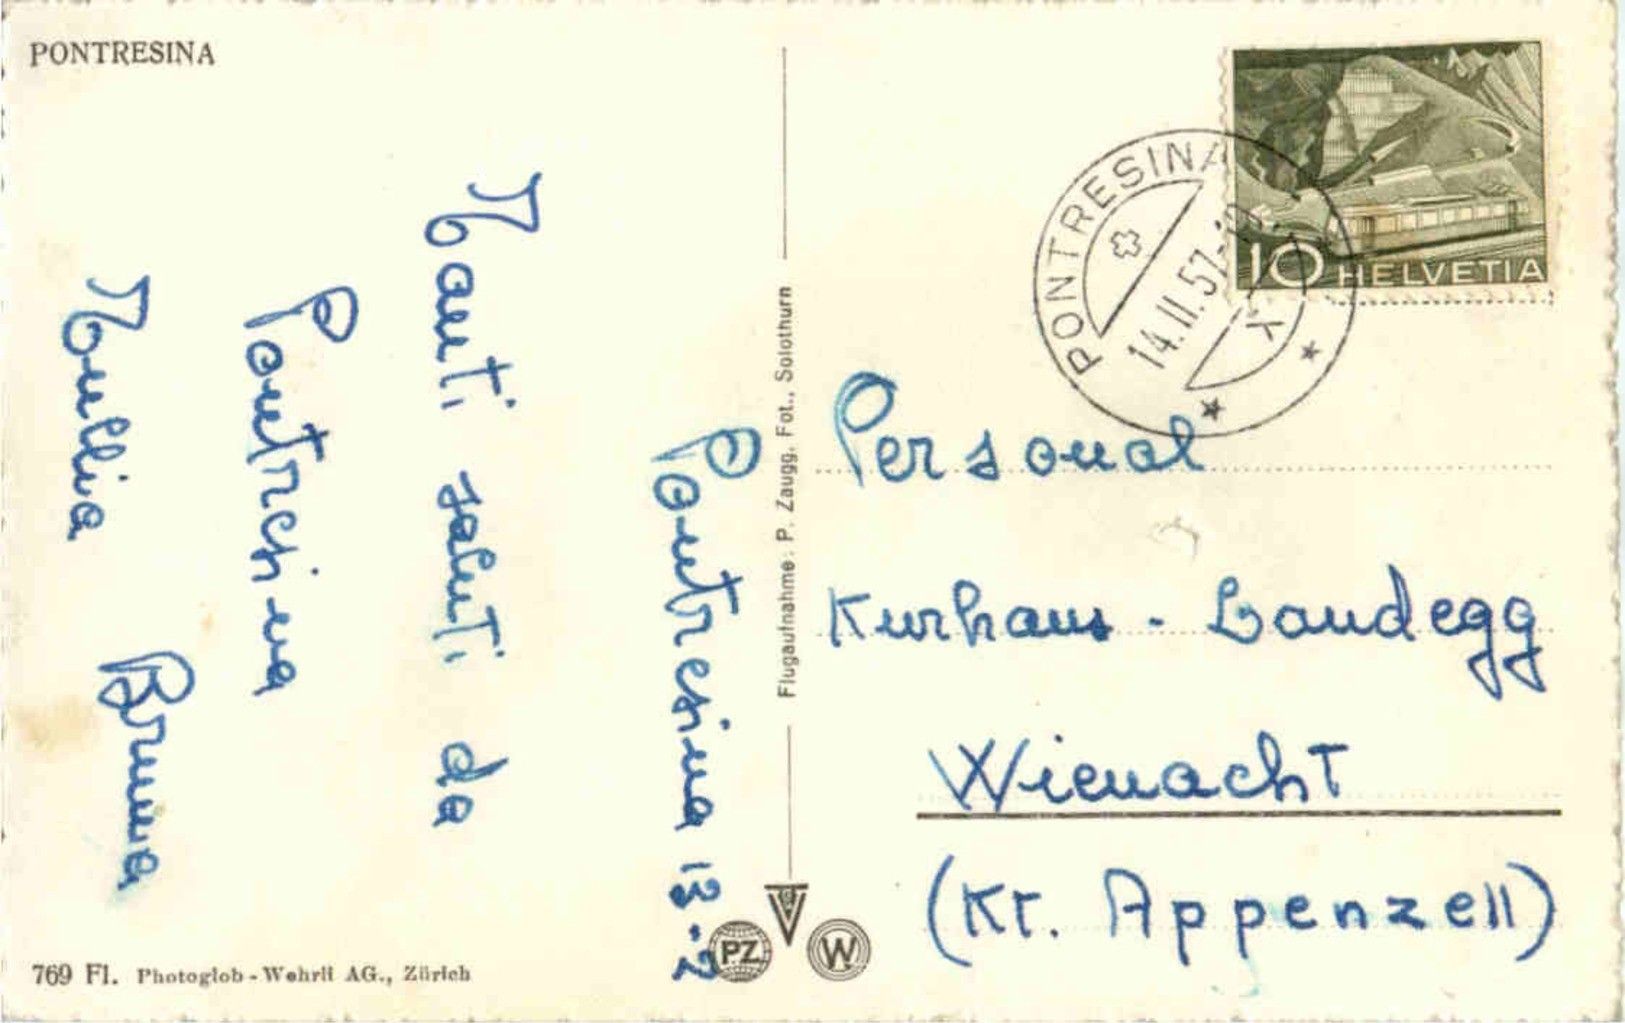 PONTRESINA
Pontresina 13-2
Tanti saluti da
Pontresina
Tullia Bruna
769 Fl. Photoglob-Wehrli AG., Zürich
Flugaufnahme: P. Zaugg, Fot., Solothurn
PZ
W
10 HELVETIA
PONTRESINA
14.II.57
Personal
Kurhaus - Landegg
Wienacht
(Kt. Appenzell)